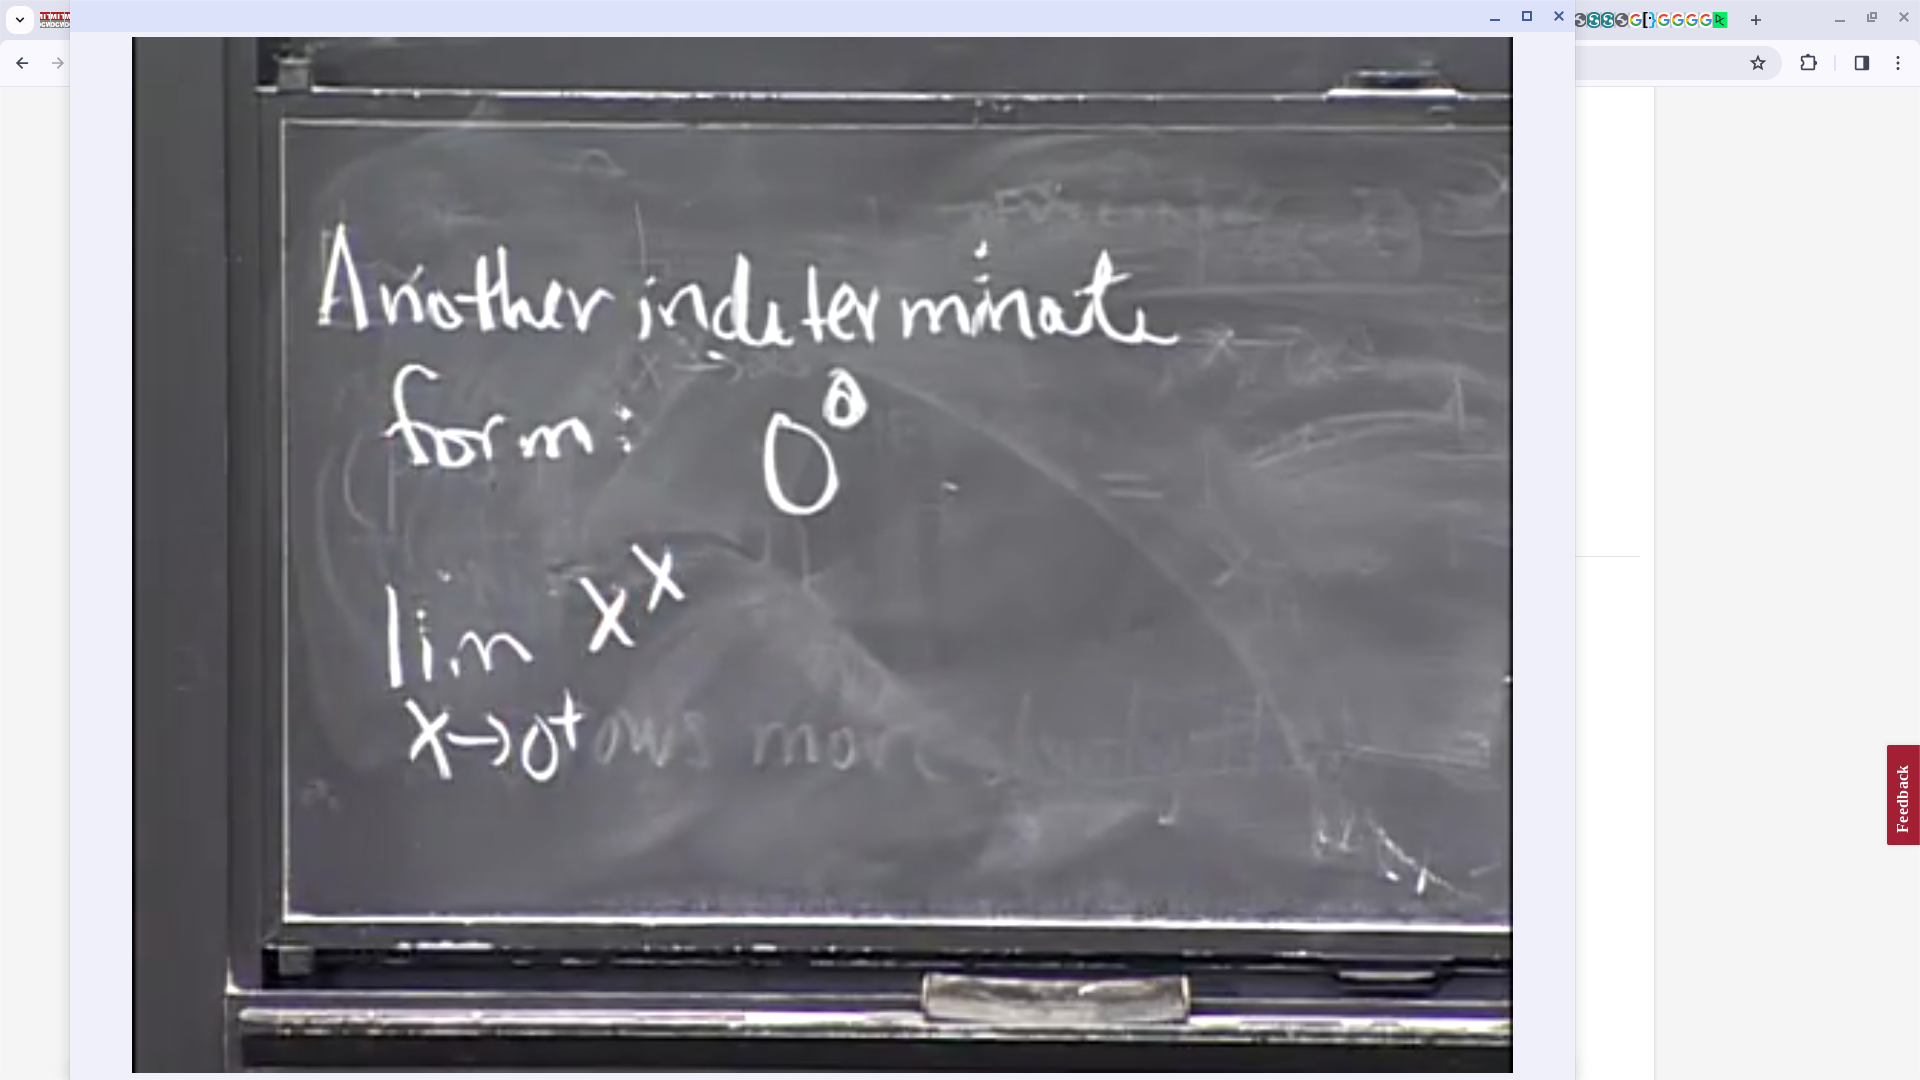 Another indeterminate
form: 0⁰
lim xˣ
x→0⁺
ows more
Feedback